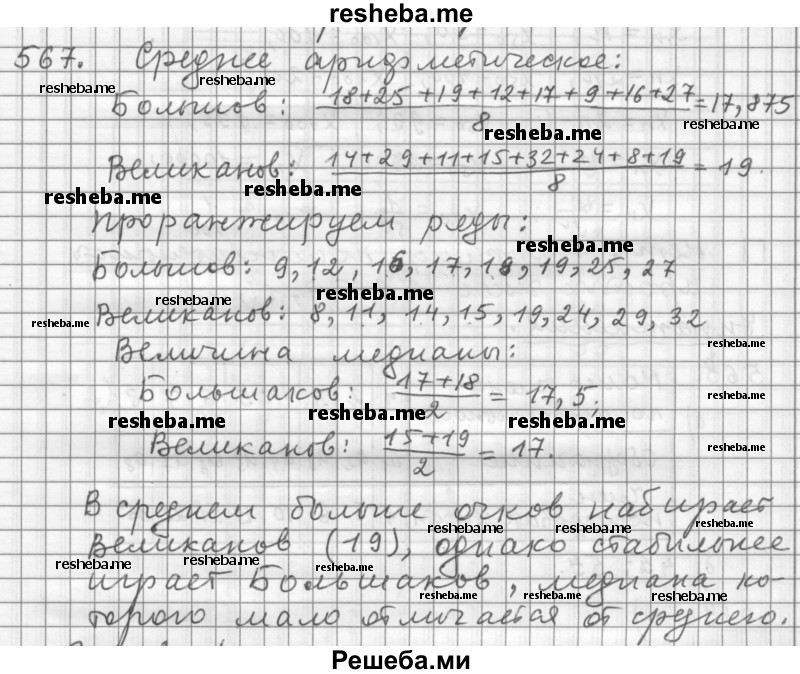 resheba.me
567. Среднее арифметическое:
resheba.me resheba.me
Большов: 18+25+19+12+17+9+16+27 / 8 = 17,875
resheba.me resheba.me
Великанов: 14+29+11+15+32+24+8+19 / 8 = 19.
resheba.me resheba.me
Проранжируем ряды:
resheba.me
Большов: 9, 12, 16, 17, 18, 19, 25, 27
resheba.me resheba.me
Великанов: 8, 11, 14, 15, 19, 24, 29, 32
resheba.me resheba.me
Величина медианы:
Большаков: 17+18 / 2 = 17,5;
resheba.me
resheba.me resheba.me resheba.me
Великанов: 15+19 / 2 = 17.
resheba.me
В среднем больше очков набирает
resheba.me resheba.me resheba.me
Великанов (19), однако стабильнее
resheba.me resheba.me resheba.me
играет Большаков, медиана ко-
resheba.me resheba.me resheba.me
торого мало отличается от среднего.
Решеба.ми